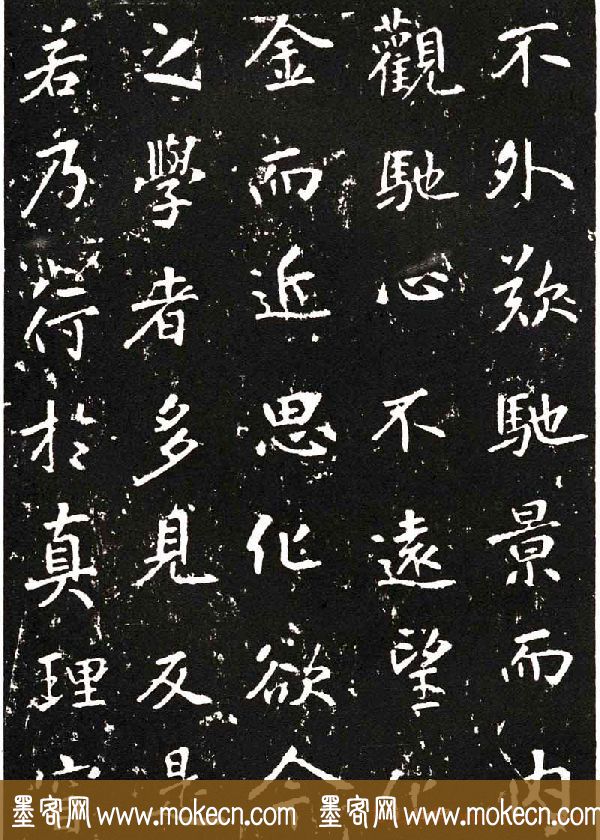 不外馳景而内
觀馳心不遠望化
金而近思化欲今
之學者多見反是
若乃於真理
墨客网 www.mokecn.com 墨客网 www.mokecn.com